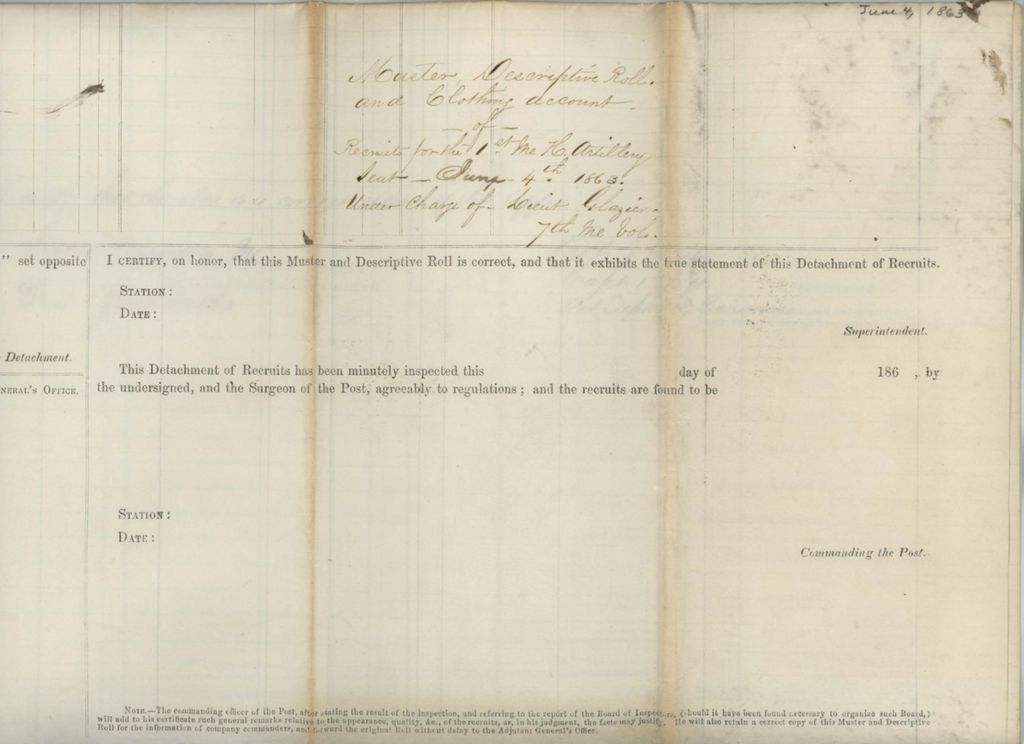 June 4, 1863
Muster, Descriptive Roll.
and Clothing account
of
Recruits for the 1st Me H. Artillery
Sent - June - 4th 1863.
Under Charge of Lieut Glazier
7th Me Vols.
" set opposite
I CERTIFY, on honor, that this Muster and Descriptive Roll is correct, and that it exhibits the true statement of this Detachment of Recruits.
STATION :
DATE :
Superintendent.
Detachment.
This Detachment of Recruits has been minutely inspected this day of 186 , by
NERAL'S OFFICE.
the undersigned, and the Surgeon of the Post, agreeably to regulations ; and the recruits are found to be
STATION :
DATE :
Commanding the Post.
NOTE.—The commanding officer of the Post, after stating the result of the inspection, and referring to the report of the Board of Inspectors, (should it have been found necessary to organize such Board,)
will add to his certificate such general remarks relative to the appearance, quality, &c., of the recruits, as, in his judgment, the facts may justify. He will also retain a correct copy of this Muster and Descriptive
Roll for the information of company commanders, and forward the original Roll without delay to the Adjutant General's Office.